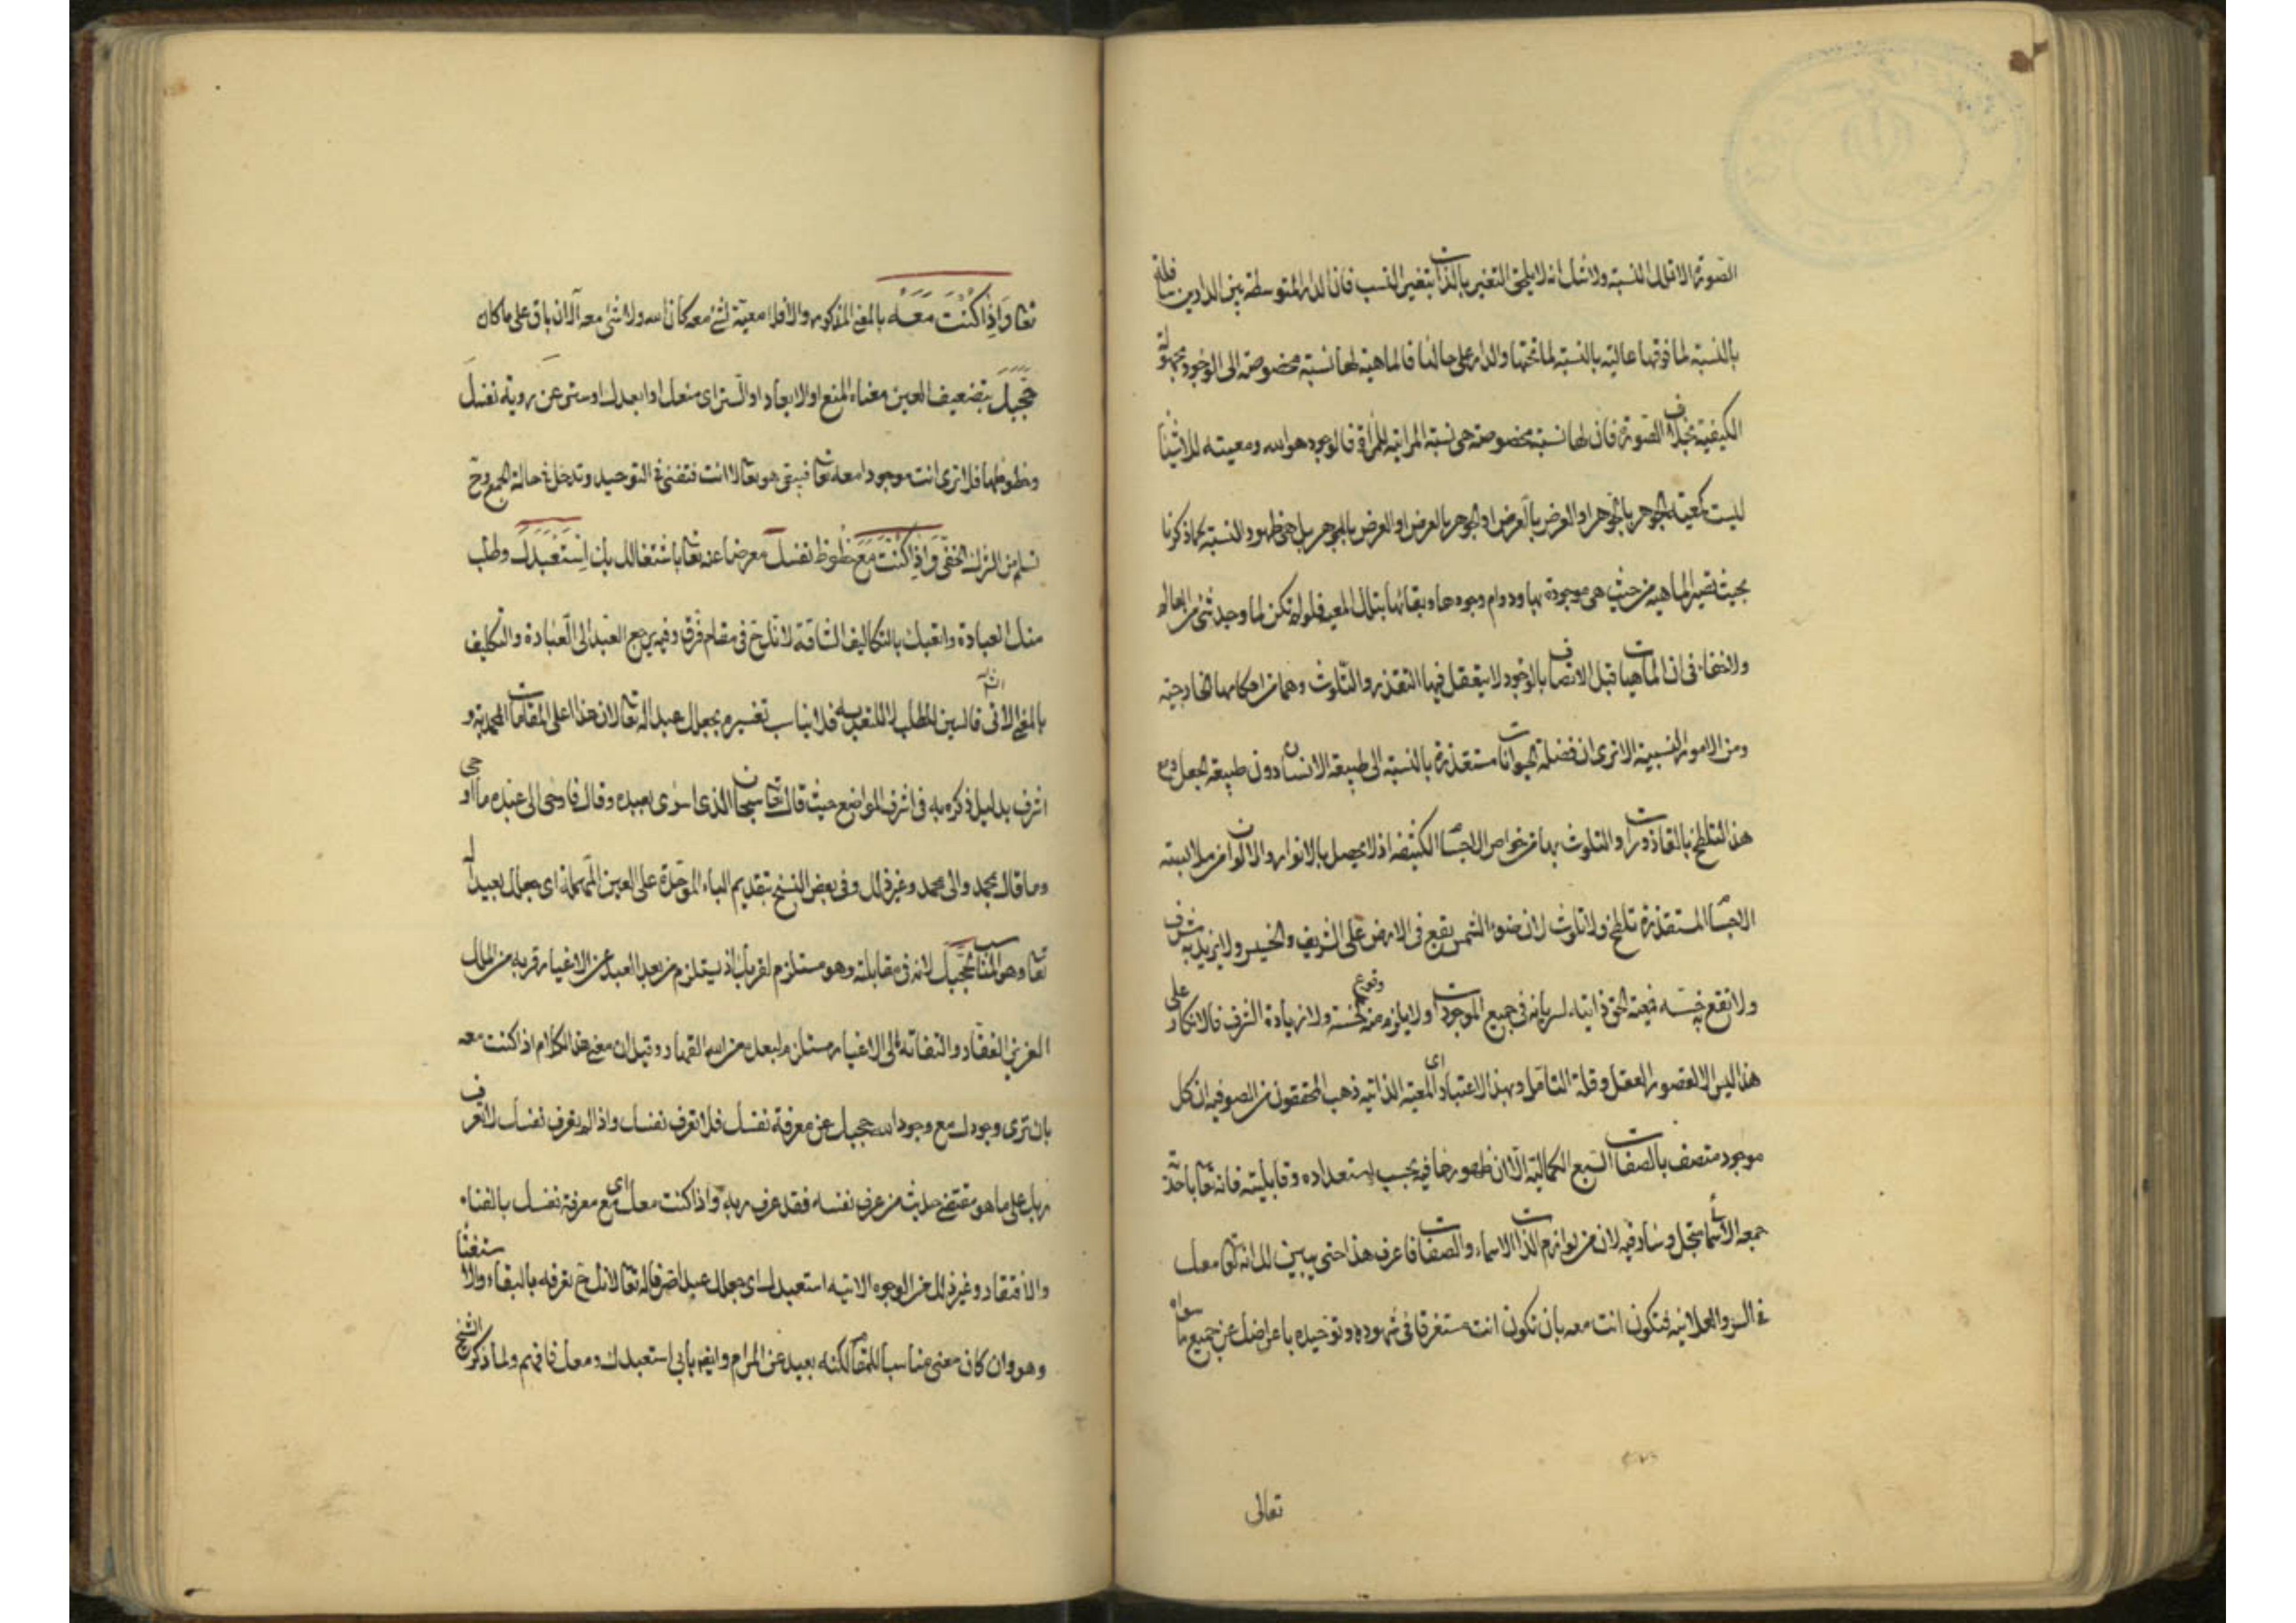 الصورة الا تلك النسبة ولا شك انه لا يلحق التغير بالذات بتغير النسب فان الدار المتوسطة بين الدارين سافلة
بالنسبة لما فوقها عالية بالنسبة لما تحتها والدار على حالها فالماهية لها نسبة مخصوصة الى الوجود مجهولة
الكيفية بخلاف الصورة فان لها نسبة مخصوصة هى نسبة المراتية للمراة فالوجود هو الله ومعيته للاشيا
ليست كمعية الجوهر بالجوهر او العرض بالعرض او الجوهر بالعرض او العرض بالجوهر بل هى ظهور النسبة كما ذكرنا
بحيث تصير الماهية من حيث هى موجودة بها ودوام وجودها وبقائها بتلك المعية فلو لم تكن لما وجد شئ من العالم
ولا خفاء فى ان الماهيات قبل الاتصاف بالوجود لا يتعقل فيها التقذر والتلوث وهما من احكامها الخارجية
ومن الامور النسبية الا ترى ان فضلة الحيوانات مستقذرة بالنسبة الى طبيعة الانسان دون طبيعة الجعل ومع
هذا التلطخ بالقاذورات والتلوث بها من خواص الاجسام الكثيفة اذ لا يحصل بالانوار والالوان من ملابسته
الاجسام المستقذرة تلطخ ولا تلوث لان ضوء الشمس يقع فى الارض على الشريف والخسيس ولا يزيد به شرف
ولا تقع خسة فمعية الحق ذاتية لسريانه فى جميع الموجودات ولا يلزم منه وقوع خسة ولا زيادة الشرف فالانكار على
هذا ليس الا لقصور العقل وقلة التامل وبهذا الاعتبار اى المعية الذاتية ذهب المحققون من الصوفية ان كل
موجود متصف بالصفات السبع الكمالية الا ان ظهورها فيه بحسب استعداده وقابليته فانه تعا باحدية
جمعه الاسمائى متجل وسار فيه لان من لوازم الذات الاسماء والصفات فاعرف هذا حتى يبين لك انه تعا معك
فى السر والعلانية فتكون انت معه بان تكون انت مستغرقا فى شهوده وتوحيده باعراضك عن جميع ما سواه
تعالى
تعا وَاِذَا كُنْتَ مَعَهُ بالمعنى المذكور والا فلا معية لشئ معه كان الله ولا شئ معه الآن باق على ما كان
حَجَّبَكَ بتضعيف العين معناه المنع او الابعاد او الستر اى منعك او ابعدك او ستر عن روية نفسك
وحظوظها فلا ترى انت موجودا معه تعا فيبقى هو تعا لا انت فتفنى فى التوحيد وتدخل فى حالة الجمع وح
تسلم من الشرك الخفى وَاِذَا كُنْتَ مَعَ حظوظ نفسك معرضا عنه تعا باشتغالك بك اِسْتَعْبَدَكَ وطلب
منك العبادة واتعبك بالتكاليف الشاقة لانك ح فى مقام فرق وفيه يرجع العبد الى العبادة والتكليف
بالمعنى الاتى فالسين للطلب لا للتعدية فلا يناسب تفسيره بجعلك عبدا له تعا لان هذا اعلى المقامات المحمدية و
اشرف بدليل ذكره به فى اشرف المواضع حيث قال تعا سبحان الذى اسرى بعبده وقال فاوحى الى عبده ما اوحى
وما قال بمحمد والى محمد وغير ذلك وفى بعض النسخ بتقديم الباء الموحدة على العين المهملة اى جعلك بعيدا له
تعا وهو المناسب لحجبك لانه فى مقابلته وهو مستلزم لقربك اذ يستلزم من بعد العبد عن الاغيار قربه من الملك
العزيز الغفار والتفاته الى الاغيار مستلزم لبعده من الله القهار وقيل ان معنى هذا الكلام اذا كنت معه
بان ترى وجودك مع وجود الله حجبك عن معرفة نفسك فلا تعرف نفسك واذا لم تعرف نفسك لا تعرف
ربك على ما هو مقتضى حديث من عرف نفسه فقد عرف ربه واذا كنت معك اى مع معرفة نفسك بالفناء
والافتقار وغير ذلك من الوجوه الاتية استعبدك اى جعلك عبدا صرفا له تعا لانك ح تعرفه بالبقاء والاستغنا
وهو وان كان معنى مناسبا للمقام لكنه بعيد عن المرام وايضا يابى استعبدك ومعك فافهم ولما ذكر الشيخ